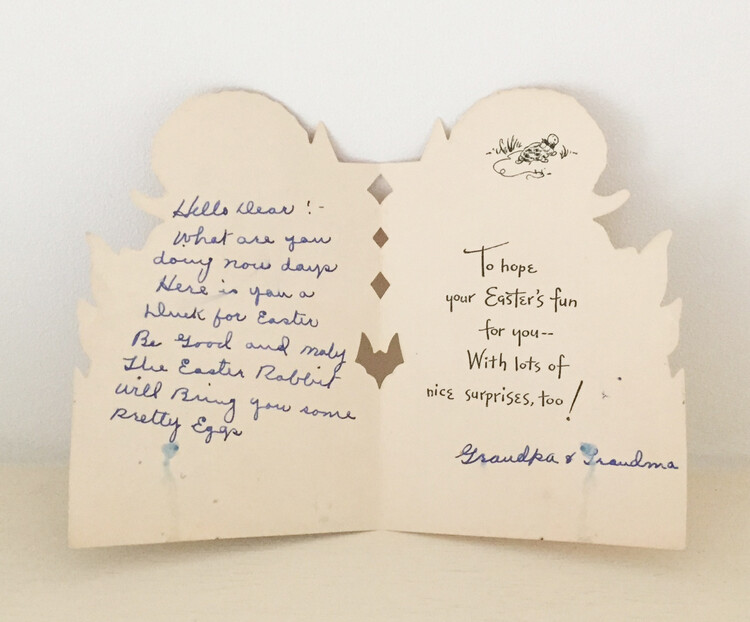 Hello Dear !-
What are you
doing now days
Here is you a
Duck for Easter
Be Good and maby
The Easter Rabbit
Will Bring you some
Pretty Eggs
To hope
your Easter's fun
for you--
With lots of
nice surprises, too!
Grandpa & Grandma